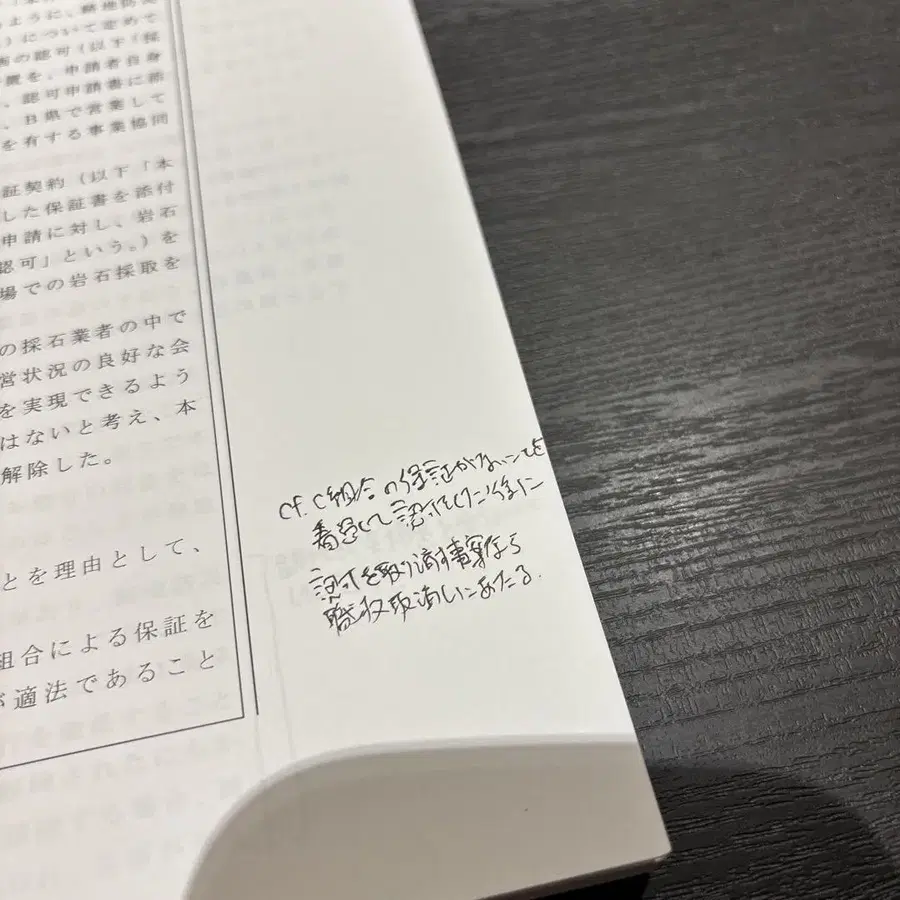 ように、跡地防災
)について定めて
画の認可(以下「採
置を、申請者自身
、認可申請書に添
、B県で営業して
を有する事業協同
証契約(以下「本
した保証書を添付
申請に対し、岩石
認可」という。)を
場での岩石採取を
の採石業者の中で
営状況の良好な会
を実現できるよう
はないと考え、本
解除した。
とを理由として、
組合による保証を
が適法であること
cf. C組合の保証がないことを
看過して認可をした後に
認可を取り消す事案なら
職权取消しにあたる.